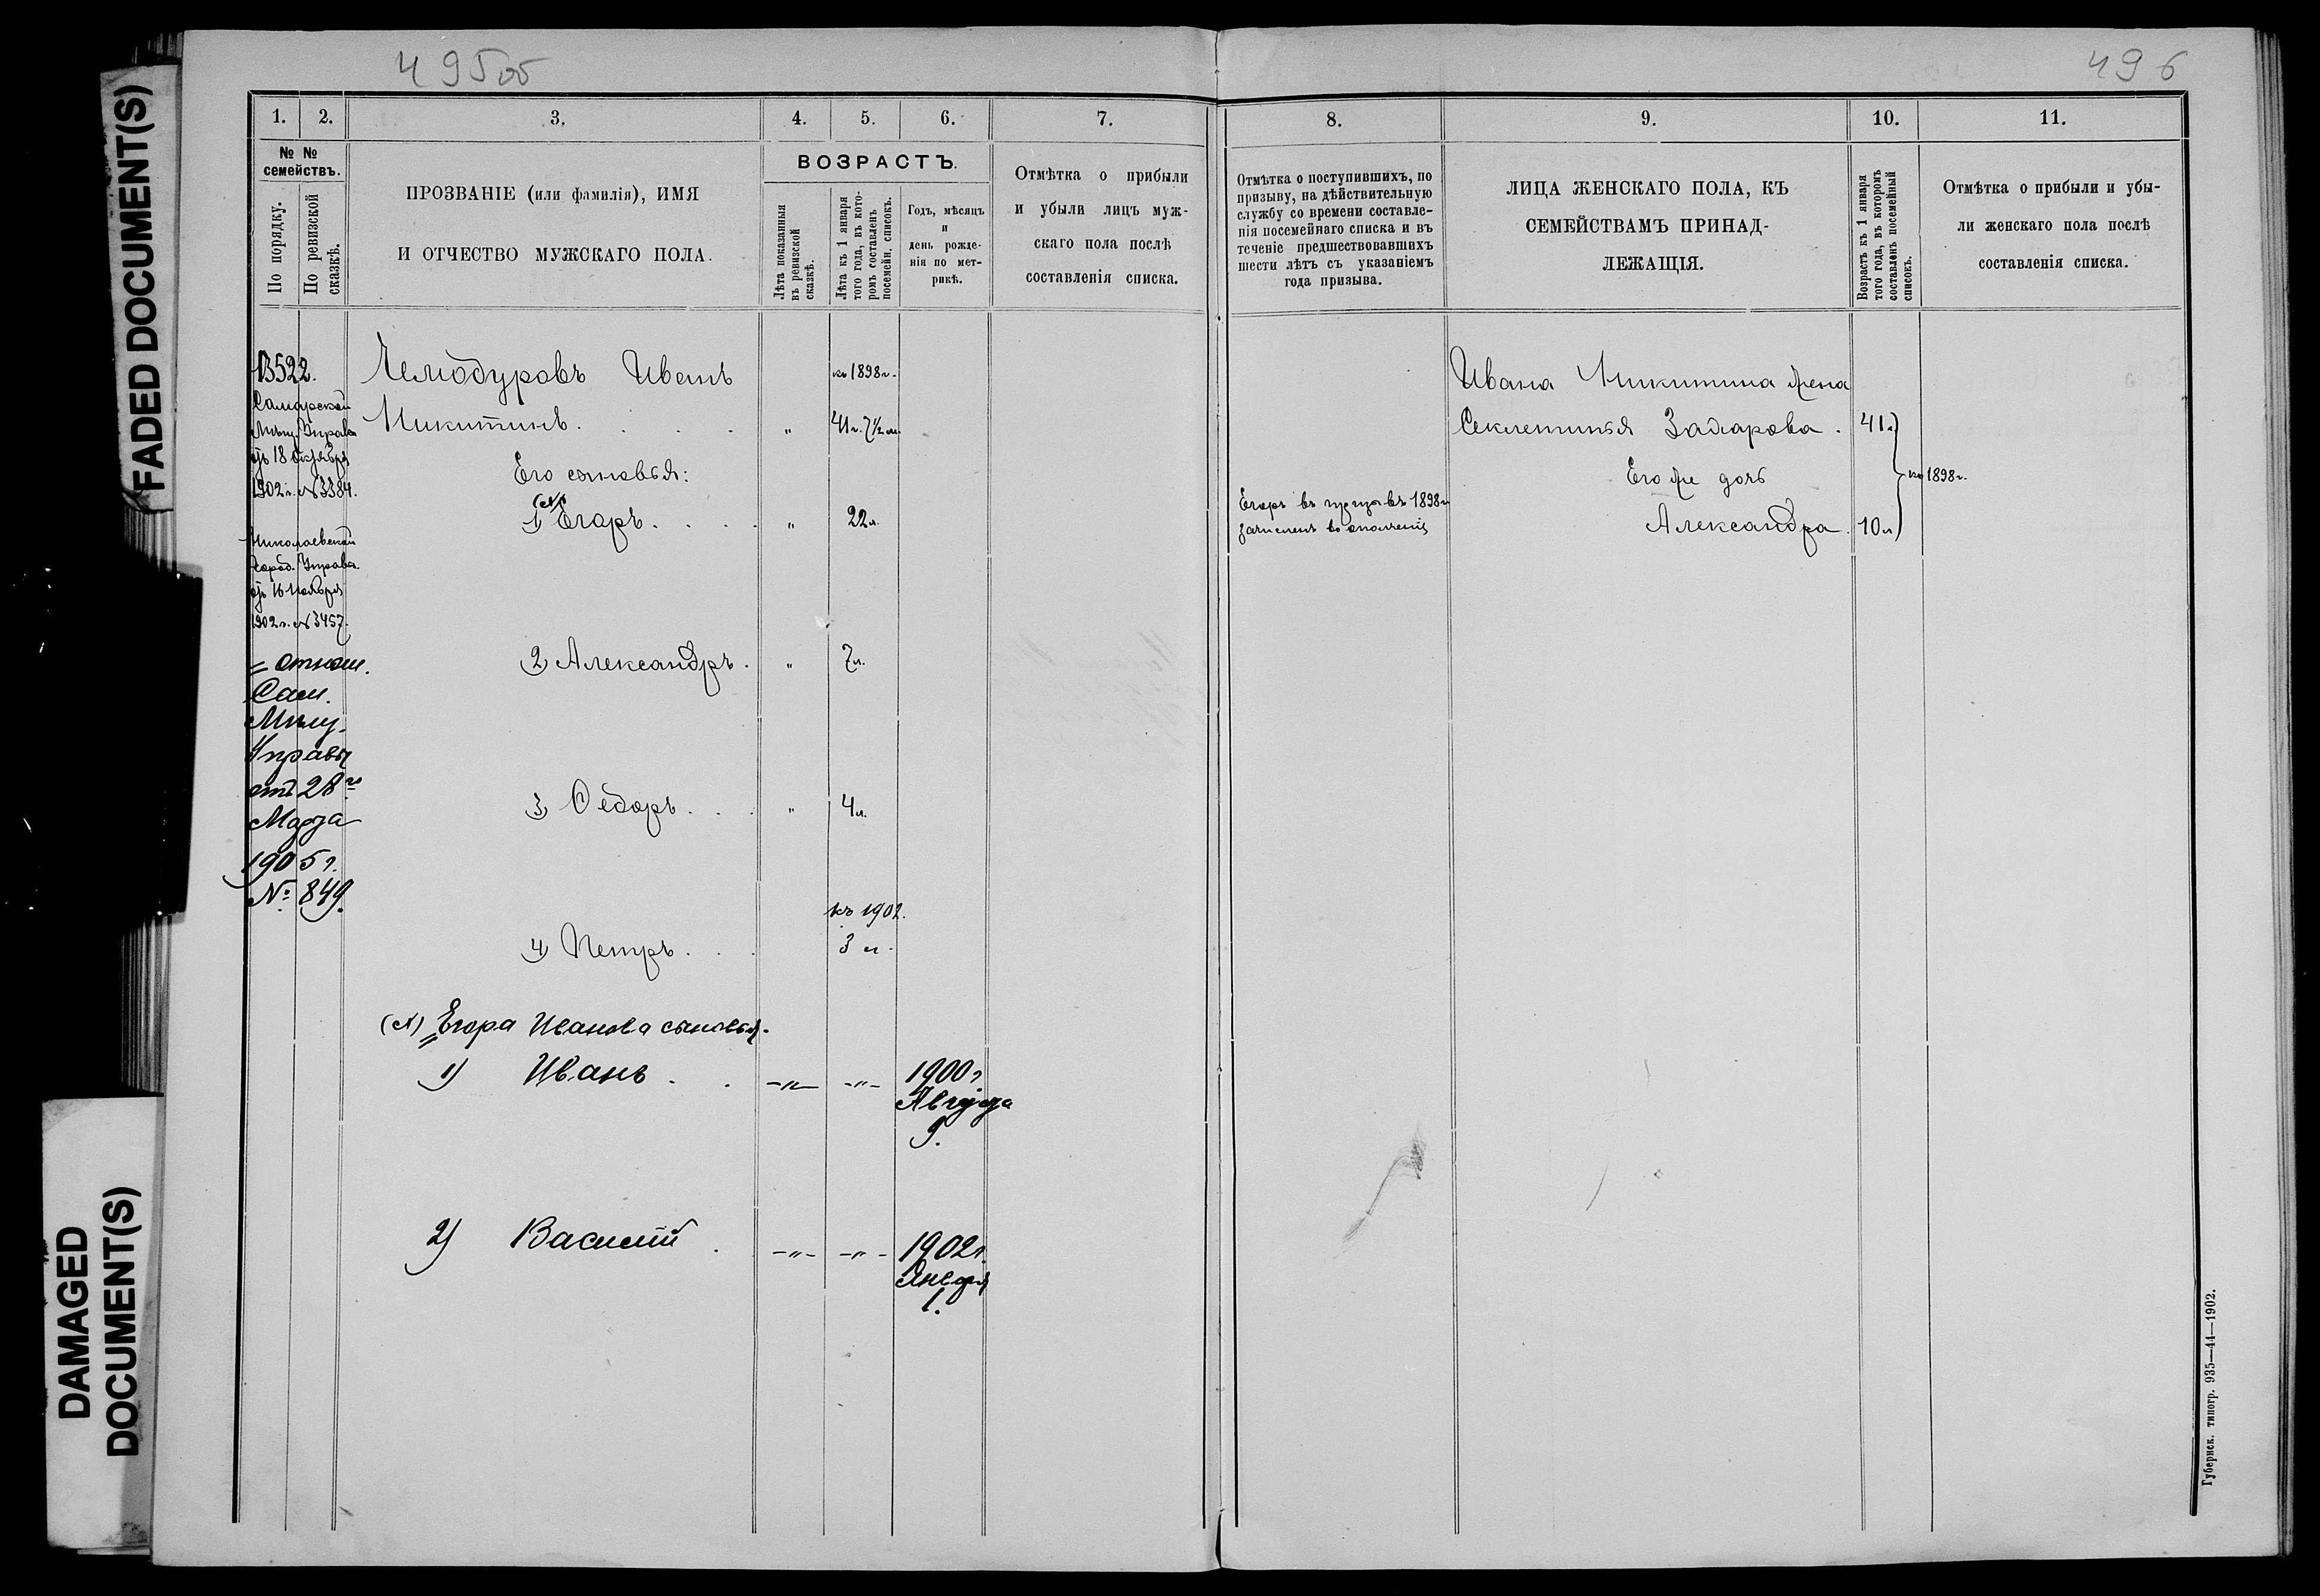 FADED DOCUMENT(S)
DAMAGED
DOCUMENT(S)
495об
496
1. 2. 3. 4. 5. 6. 7.
№ №
семействъ.
По порядку.
По ревизской
сказкѣ.
ПРОЗВАНІЕ (или фамилія), ИМЯ
И ОТЧЕСТВО МУЖСКАГО ПОЛА.
ВОЗРАСТЪ.
Лѣта показанныя
въ ревизской
сказкѣ.
Лѣта къ 1 января
того года, въ кото-
ромъ составленъ
посемейн. списокъ.
Годъ, мѣсяцъ
и
день рожде-
нія по мет-
рикѣ.
Отмѣтка о прибыли
и убыли лицъ муж-
скаго пола послѣ
составленія списка.
13522.
Самарской
Мѣщ. Управы
отъ 18 октября
1902 г. №3384.
Николаевской
Город. Управы
отъ 16 Ноября
1902 г. №3457.
= отнош.
Сам.
Мѣщ.
Управы
отъ 28го
Марта
1905 г.
№ 849.
Чемодуровъ Иванъ къ 1898 г.
Никитинъ. . . . " 41 г. 7½ м.
Его сыновья:
1) Егоръ. . . . " 22 л.
2) Александръ. " 7 л.
3) Ѳедоръ. . . " 4 л.
къ 1902.
4) Петръ. . . 3 л.
Егора Иванова сыновья.
1) Иванъ . . -"- -"- 1900 г.
Августа
9.
2) Василій . -"- -"- 1902 г.
Января
1.
8. 9. 10. 11.
Отмѣтка о поступившихъ, по
призыву, на дѣйствительную
службу со времени составле-
нія посемейнаго списка и въ
теченіе предшествовавшихъ
шести лѣтъ съ указаніемъ
года призыва.
ЛИЦА ЖЕНСКАГО ПОЛА, КЪ
СЕМЕЙСТВАМЪ ПРИНАД-
ЛЕЖАЩІЯ.
Возрастъ къ 1 января
того года, въ которомъ
составленъ посемейный
списокъ.
Отмѣтка о прибыли и убы-
ли женскаго пола послѣ
составленія списка.
Егоръ въ призывъ 1898 г.
зачисленъ въ ополченіе
Ивана Никитина жена
Секлетинья Захарова. 41 л.
Его же дочь къ 1898 г.
Александра. 10 л.
Губернск. типогр. 935—44—1902.